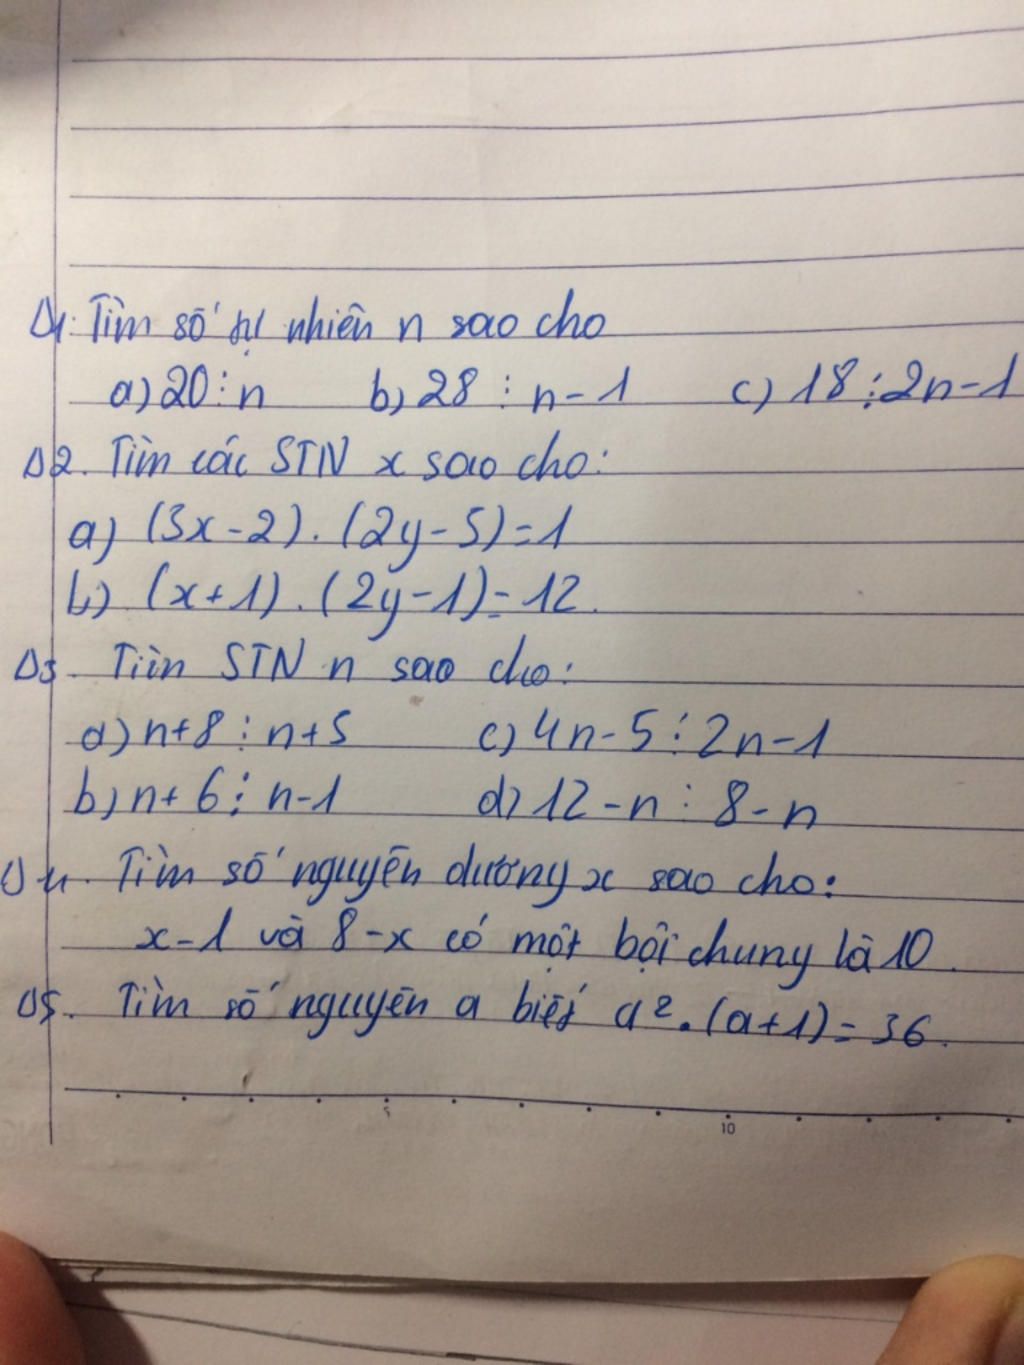 D1: Tìm số tự nhiên n sao cho
a) 20 ⋮ n b) 28 ⋮ n - 1 c) 18 ⋮ 2n - 1
D2. Tìm các STN x sao cho:
a) (3x - 2) . (2y - 5) = 1
b) (x + 1) . (2y - 1) = 12.
D3. Tìm STN n sao cho:
a) n + 8 ⋮ n + 5 c) 4n - 5 ⋮ 2n - 1
b) n + 6 ⋮ n - 1 d) 12 - n ⋮ 8 - n
D4. Tìm số nguyên dương x sao cho:
x - 1 và 8 - x có một bội chung là 10.
D5. Tìm số nguyên a biết a². (a + 1) = 36.
5 10